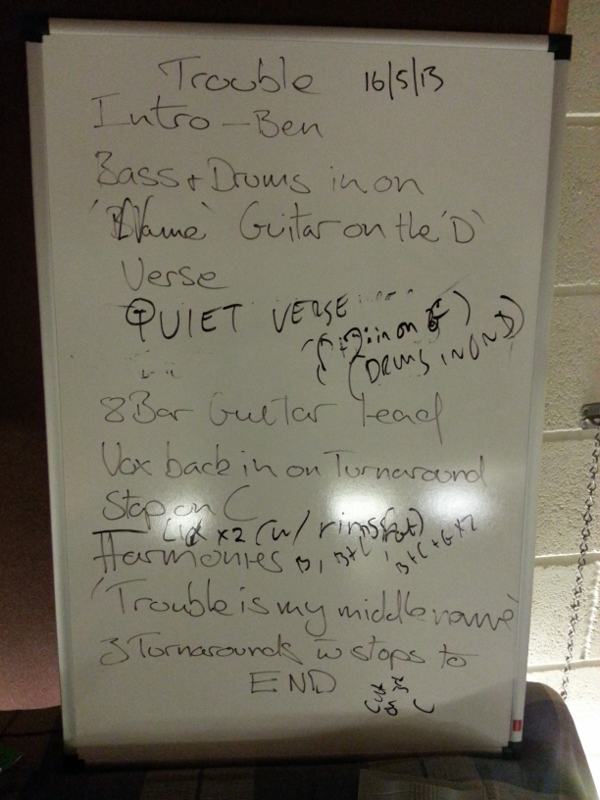 Trouble 16/5/13
Intro - Ben
Bass + Drums in on
'Name' Guitar on the 'D'
Verse
QUIET VERSE
in on G)
(DRUMS IN ON D)
8 Bar Guitar Lead
Vox back in on Turnaround
Stop on C
Lick x2 (w/ rimshot)
Harmonies B, B+C, B+C+G x2
'Trouble is my middle name'
3 Turnarounds w stops to
END
on C